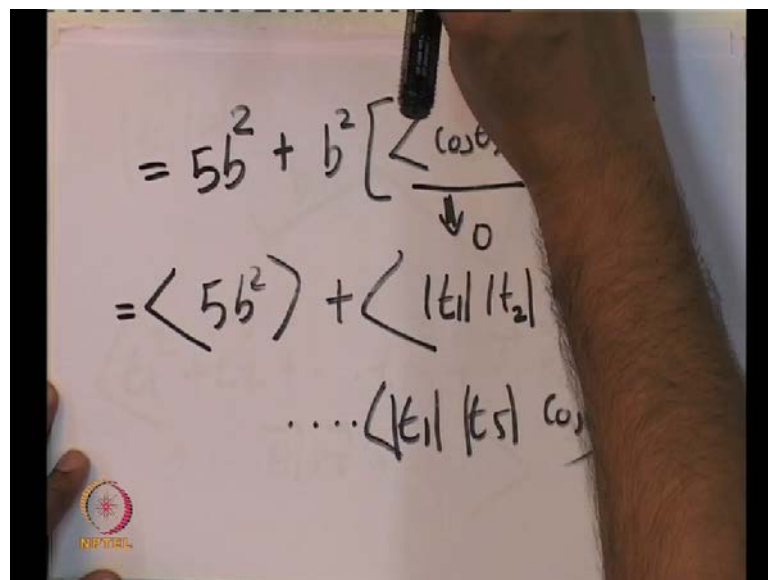 = 5b² + b² [< cosθ
↓ 0
= < 5b² > + < |t₁| |t₂|
.... < |t₁| |t₅| cos
NPTEL